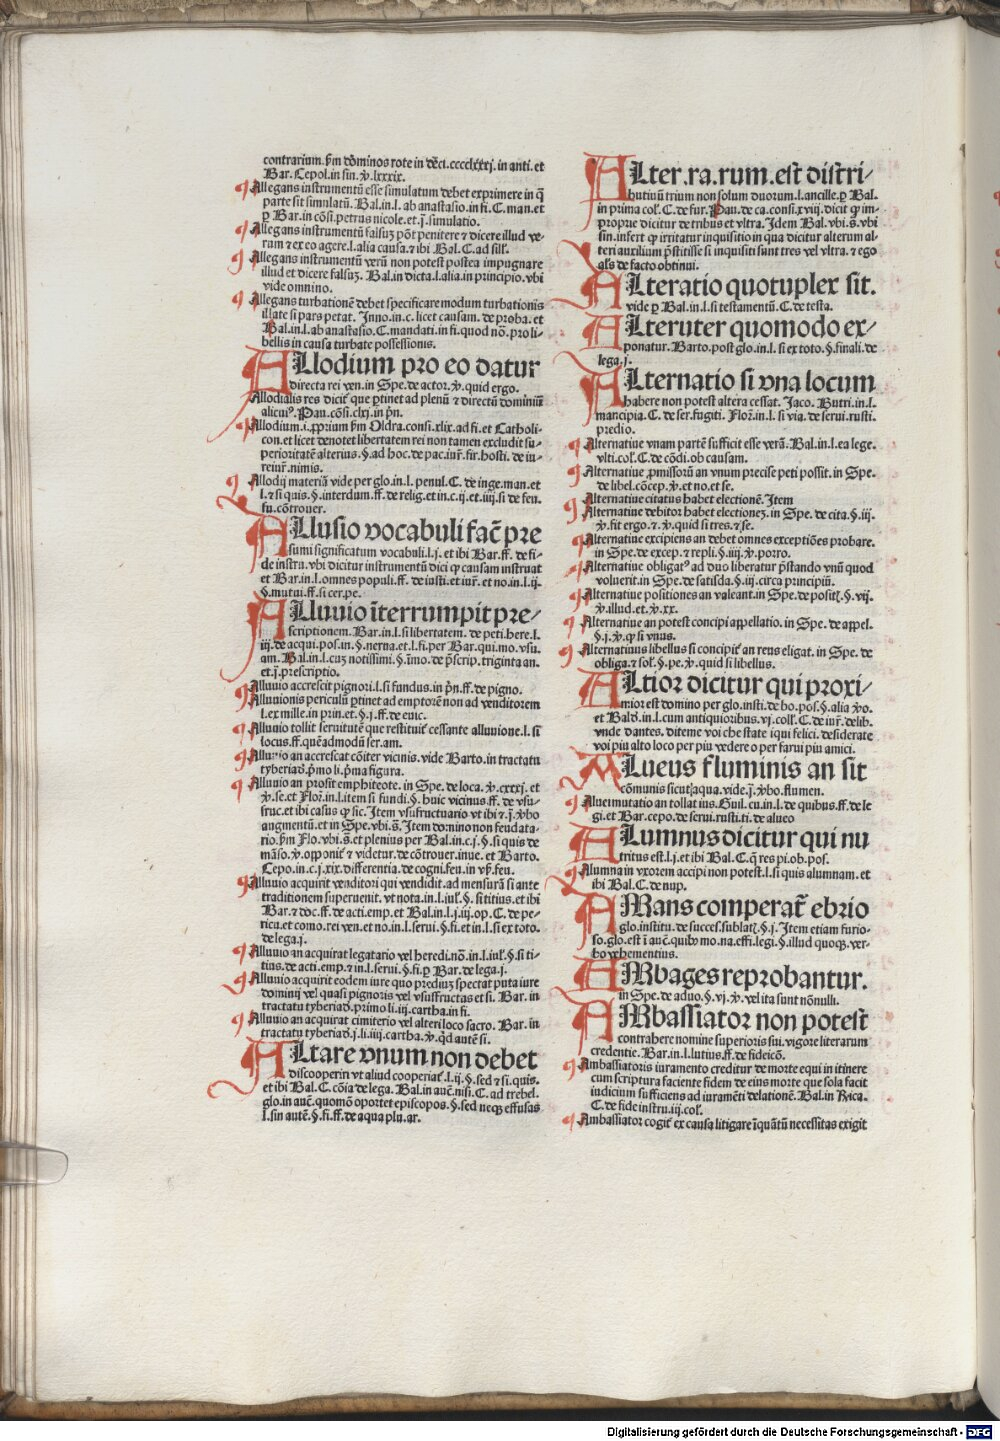 contrarium. ẜm dominos rote in deci. ccccxxxj. in anti. et
Bar. Cepol. in sin. ꝟ. lxxxix.
Allegans instrumentū esse simulatum debet exprimere in q̄
parte sit simulatū. Bal. in. l. ab anastasio. in fi. C. man. et
ꝑ Bar. in cōsi. petrus nicole. et. j̄. simulatio.
Allegans instrumentū falsuꝫ pōt penitere ⁊ dicere illud ve-
rum ⁊ ex eo agere. l. alia causa. ⁊ ibi Bal. C. ad sill.
Allegans instrumentū verū non potest postea impugnare
illud et dicere falsuꝫ. Bal. in dicta. l. alia. in principio. vbi
vide omnino.
Allegans turbationē debet specificare modum turbationis
illate si pars petat. Inno. in. c. licet causam. de proba. et
Bal. in. l. ab anastasio. C. mandati. in fi. quod nō. pro li-
bellis in causa turbate possessionis.
ALlodium pro eo datur
directa rei ven. in Spe. de actor. ꝟ. quid ergo.
Allodialis res dicit᷑ que ꝑtinet ad plenū ⁊ directū dominiū
alicuiꝰ. Pau. cōsi. clxj. in pn̄.
Allodium. i. ꝓprium ẜm Oldra. consi. xlix. ad fi. et Catholi-
con. et licet denotet libertatem rei non tamen excludit su-
perioritatē alterius. §. ad hoc. de pac. iur̄. fir. hosti. de iu-
reiur̄. nimis.
Allodij materiā vide per glo. in. l. penul. C. de inge. man. et
l. ⁊ si quis. §. interdum. ff. de relig. et in. c. ij. et. iiij. si de feu.
fu. cōtrouer.
ALlusio vocabuli fac̄ pre
sumi significatum vocabuli. l. j. et ibi Bar. ff. de fi-
de instru. vbi dicitur instrumentū dici ꝙ causam instruat
et Bar. in. l. omnes populi. ff. de iusti. et iur̄. et no. in. l. ij.
§. mutui. ff. si cer. pe.
ALluuio īterrumpit pre-
scriptionem. Bar. in. l. si libertatem. de peti. here. l.
iij. de acqui. pos. in. §. nerua. et. l. fi. per Bar. qui. mo. vsu.
am. Bal. in. l. cuꝫ notissimi. §. īmo. de p̄scrip. triginta an.
et. j̄. prescriptio.
Alluuio accrescit pignori. l. si fundus. in pn̄. ff. de pigno.
Alluuionis periculū ꝑtinet ad emptorē non ad venditorem
l. ex mille. in prin. et. §. j. ff. de euic.
Alluuio tollit seruitutē que restituit᷑ cessante alluuione. l. si
locus. ff. quēadmodū ser. am.
Alluuio an accrescat cōiter vicinis. vide Barto. in tractatu
tyberiad. p̄mo li. p̄ma figura.
Alluuio an prosit emphiteote. in Spe. de loca. ꝟ. cxxxj. et
ꝟ. se. et Flor̄. in. l. item si fundi. §. huic vicinus. ff. de vsu-
fruc. et ibi casus ꝙ sic. Item vsufructuario vt ibi ⁊ j̄. ꝟbo
augmentū. et in Spe. vbi. s̄. Item domino non feudata-
rio. ẜm Flo. vbi. s̄. et plenius per Bal. in. c. j. §. si quis de
māso. ꝟ. opponit᷑ ⁊ videtur. de cōtrouer. inue. et Barto.
Cepo. in. c. j. xix. differentia. de cogni. feu. in vꝑ. feu.
Alluuio acquirit venditori qui vendidit. ad mensurā si ante
traditionem superuenit. vt nota. in. l. iul̄. §. si titius. et ibi
Bar. ⁊ doc. ff. de acti. emp. et Bal. in. l. j. iij. op. C. de pe-
ricu. et como. rei ven. et no. in. l. serui. §. fi. et in. l. si ex toto.
de lega. j.
Alluuio an acquirat legatario vel heredi. nō. in. l. iul̄. §. si ti-
tius. de acti. emp. ⁊ in. l. serui. §. fi. ꝑ Bar. de lega. j.
Alluuio acquirit eodem iure quo prediuꝫ spectat puta iure
dominij vel quasi pignoris vel vsusfructus et si. Bar. in
tractatu tyberiad. primo li. iij. cartha. in fi.
Alluuio an acquirat cimiterio vel alteri loco sacro. Bar. in
tractatu tyberiad. j. li. iiij. cartha. ꝟ. qd̄ autē si.
ALtare vnum non debet
discooperiri vt aliud cooperiat᷑. l. ij. §. sed ⁊ si. quis.
et ibi Bal. C. cōia de lega. Bal. in auc̄. nisi. C. ad trebel.
glo. in auc̄. quomō oportet episcopos. §. sed neqꝫ effusas
l. sin autē. §. fi. ff. de aqua plu. ar.
ALter.ra.rum.est distri-
butiuū trium non solum duorum. l. ancille. ꝑ Bal.
in prima col̄. C. de fur. Pau. de ca. consi. xviij. dicit ꝙ im-
proprie dicitur de tribus et vltra. Idem Bal. vbi. s̄. vbi
sin. infert ꝙ irritatur inquisitio in qua dicitur alterum al-
teri auxilium p̄stitisse si inquisiti sunt tres vel vltra. ⁊ ego
als̄ de facto obtinui.
ALteratio quotuplex sit.
vide ꝑ Bal. in. l. si testamentū. C. de testa.
ALteruter quomodo ex-
ponatur. Barto. post glo. in. l. si ex toto. §. finali. de
lega. j.
ALternatio si vna locum
habere non potest altera cessat. Jaco. Butri. in. l.
mancipia. C. de ser. fugiti. Flor̄. in. l. si via. de serui. rusti.
predio.
Alternatiue vnam partē sufficit esse verā. Bal. in. l. ea lege.
vlti. col̄. C. de cōdi. ob causam.
Alternatiue ꝓmissorū an vnum precise peti possit. in Spe.
de libel. cōcep. ꝟ. et no. et se.
Alternatiue citatus habet electionē. Item
Alternatiue debitor habet electioneꝫ. in Spe. de cita. §. iij.
ꝟ. sit ergo. ⁊. ꝟ. quid si tres. ⁊ se.
Alternatiue excipiens an debet omnes exceptiōes probare.
in Spe. de excep. ⁊ repli. §. iiij. ꝟ. porro.
Alternatiue obligatꝰ ad duo liberatur p̄stando vnū quod
voluerit. in Spe. de satisda. §. iij. circa principiū.
Alternatiue positiones an valeant. in Spe. de positꝭ. §. vij.
ꝟ. illud. et. ꝟ. xx.
Alternatiue an potest concipi appellatio. in Spe. de appel.
§. j. ꝟ. ꝙ si vnus.
Alternatiuus libellus si concipit᷑ an reus eligat. in Spe. de
obliga. ⁊ sol̄. §. pe. ꝟ. quid si libellus.
ALtior dicitur qui proxi-
mior est domino per glo. insti. de bo. pos. §. alia ꝟo.
et Bald. in. l. cum antiquioribus. vj. coll̄. C. de iur̄. delib.
vnde dantes. diteme voi che state i qui felici. desiderate
voi piu alto loco per piu vedere o per farui piu amici.
ALueus fluminis an sit
cōmunis sicut aqua. vide. j̄. ꝟbo. flumen.
Aluei mutatio an tollat ius. Guil. cu. in. l. de quibus. ff. de le
gi. et Bar. cepo. de serui. rusti. ti. de alueo
ALumnus dicitur qui nu
tritus est. l. j. et ibi Bal. C. q̄ res pi. ob. pos.
Alumna in vxorem accipi non potest. l. si quis alumnam. et
ibi Bal. C. de nup.
AMans comperat᷑ ebrio
glo. institu. de succes. sublatꝭ. §. j. Item etiam furio-
so. glo. est ī auc̄. quibꝰ mo. na. effi. legi. §. illud quoqꝫ. ver-
bo vehementius.
AMbages reprobantur.
in Spe. de aduo. §. vj. ꝟ. vel ita sunt nōnulli.
AMbassiator non potest
contrahere nomine superioris sui. vigore literarum
credentie. Bar. in. l. lutius. ff. de fideicō.
Ambassiatoris iuramento creditur de morte equi in itinere
cum scriptura faciente fidem de eius morte que sola facit
iudicium sufficiens ad iuramēti delationē. Bal. in Rrica.
C. de fide instru. iij. col̄.
Ambassiator cogit᷑ ex causa litigare īquātū necessitas exigit
Digitalisierung gefördert durch die Deutsche Forschungsgemeinschaft - DFG